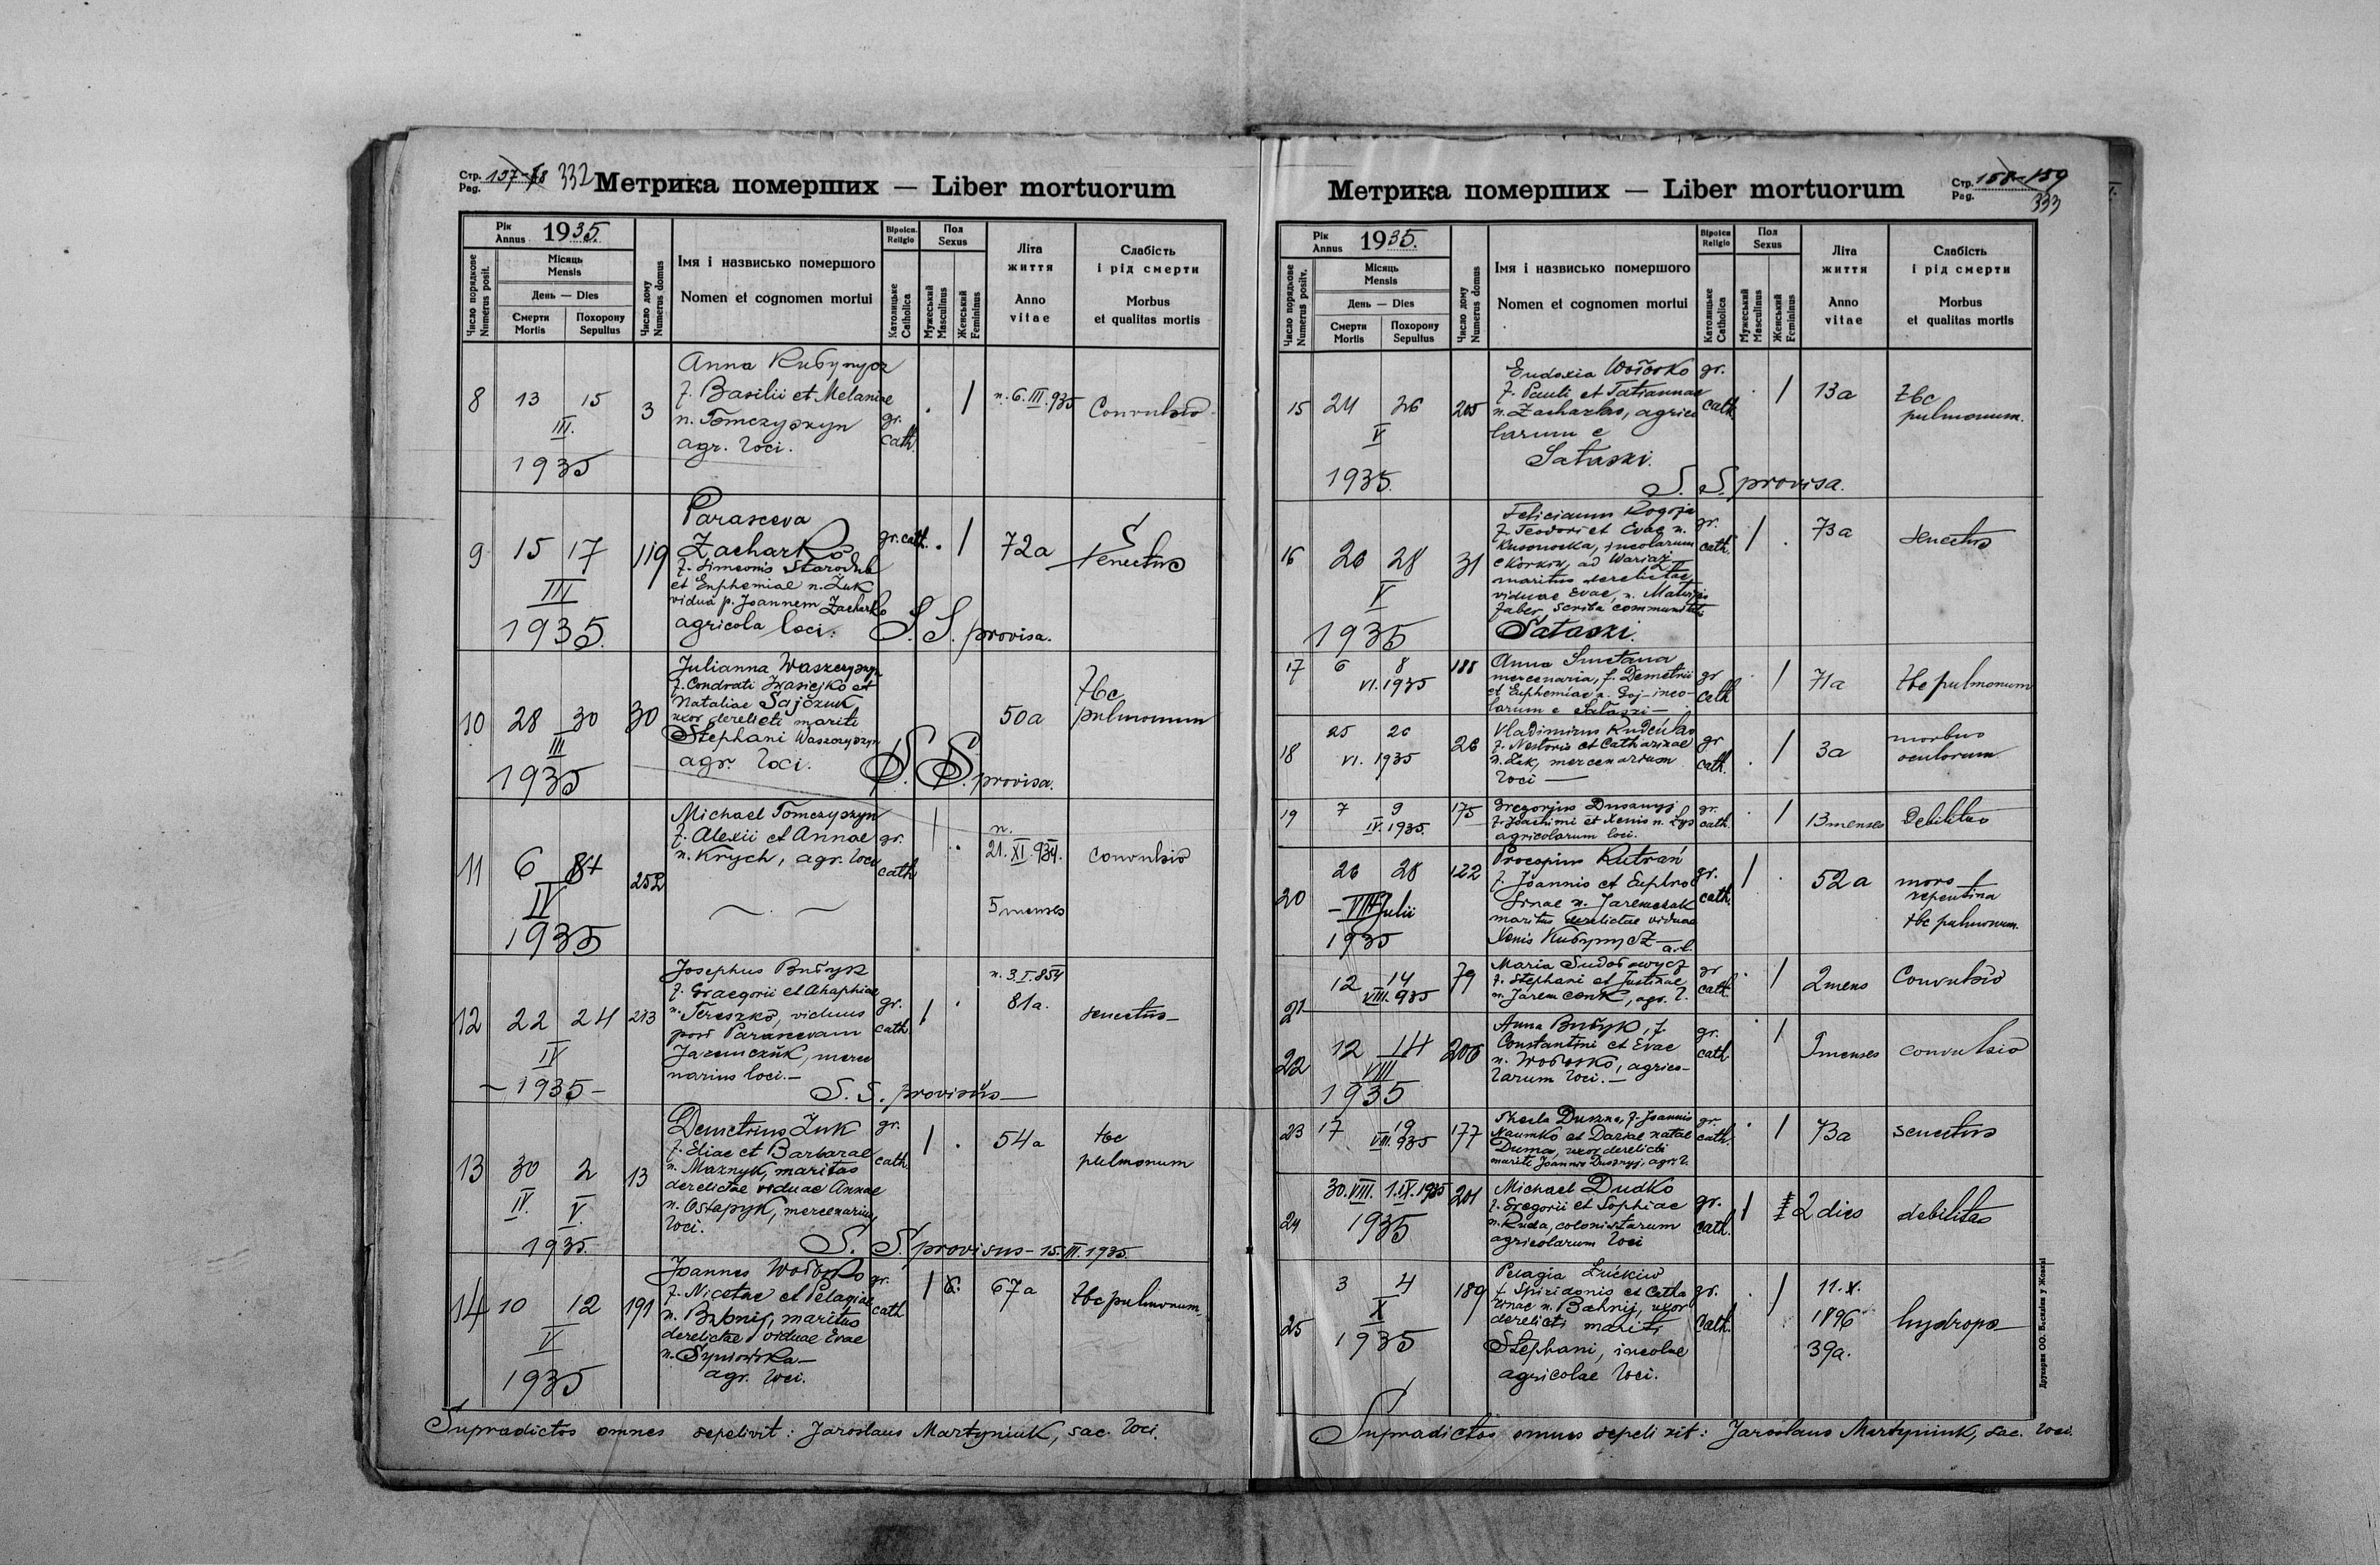 Стр. Pag. 157-58 332
Метрика померших — Liber mortuorum
Рік Annus 1935.
Число порядкове Numerus posit.
Місяць Mensis
День — Dies
Смерти Mortis
Похорону Sepultus
Число дому Numerus domus
Імя і назвисько помершого
Nomen et cognomen mortui
Віроісп. Religio
Католицьке Catholica
Пол Sexus
Мужеський Masculinus
Женський Femininus
Літа життя
Anno vitae
Слабість і рід смерти
Morbus et qualitas mortis
8 13 15 III. 1935 3
Anna
f. Basilii et Melaniae
n. Tomczyszyn
agr. loci.
gr. cath. . / n. 6.III.935 Convulsio
9 15 17 III 1935. 119
Parasceva
Zacharko
f. Simeonis Starodub
et Euphemiae n. Żuk
vidua p. Joannem Zacharko
agricola loci.
gr. cath. . / 72a Senectus
S. S. provisa.
10 28 30 III 1935 30
Julianna Waszczyszyn
f. Condrati Iwasiejko et
Nataliae Sajczuk
uxor derelicti mariti
Stephani Waszczyszyn
agr. loci.
50a tbc pulmonum
S. S. provisa.
11 6 8 IV 1935 252
Michael Tomczyszyn
f. Alexii et Annae
n. Krych, agr. loci
gr. cath / . n. 21.XI.934. 5 menses convulsio
12 22 24 IV – 1935 – 213
Josephus
f. Graegorii et Ahaphiae
n. Tereszko, viduus
post Parascevam
Jaremczuk, merce
narius loci. –
gr. cath / . n. 3.I.854 81a. senectus –
S. S. provisus –
13 30 2 IV. V. 1935. 13
Demetrius Żuk
f. Eliae et Barbarae
n. Maznyk, maritus
derelictae viduae Annae
n. Ostapyk, mercenarius
loci.
gr. cath. / . 54a tbc pulmonum
S. S. provisus – 15.III.1935.
14 10 12 V 1935 191
Joannes
f. Nicetae et Pelagiae
n. maritus
derelictae viduae Evae
n.
agr. loci.
gr. cath / 67a tbc pulmonum.
Supradictos omnes sepelivit: Jaroslaus Martyniuk, sac. loci.
Метрика померших — Liber mortuorum
Стр. Pag. 158-159 333
Рік Annus 1935.
Число порядкове Numerus positv.
Місяць Mensis
День — Dies
Смерти Mortis
Похорону Sepultus
Число дому Numerus domus
Імя і назвисько помершого
Nomen et cognomen mortui
Віроісп Religio
Католицьке Catholica
Пол Sexus
Мужеський Masculinus
Женський Femininus
Літа життя
Anno vitae
Слабість і рід смерти
Morbus et qualitas mortis
15 24 26 V 1935. 205
Eudoxia
f. Pauli et Tatiannae
n. Zacharko, agrico
larum e
Sataszi.
gr. cath . / 13a tbc pulmonum.
S. S. provisa.
16 26 28 V 1935 31
Felicianus Rogoza
f. Teodori et Evae n.
incolarum
e Korkow, ad Wariaz
maritus derelictae
viduae Evae, n.
faber, scriba
Sataszi.
gr. cath. / . 73a senectus
17 6 8 VI. 1935 188
Anna Smetana
mercenaria, f. Demetrii
et Euphemiae n. Gaj – inco-
larum e Sataszi –
gr cath . / 71a tbc pulmonum
18 25 26 VI. 1935 26
Vladimirus
f. Nestoris et Catharinae
mercenarium
loci –
gr cath. . / 3a morbus oculorum
19 7 9 IV. 1935. 175
Gregorius
f. Joachimi et Xenis n. Lys
agricolarum loci.
gr. cath. . / 13 menses Debilitas
20 26 28 – VII Julii 1935 122
Procopius
f. Joannis et Euphro
sinae n. Jaremczuk
maritus derelictae viduae
Xenis a. l.
gr. cath. / . 52a mors repentina
tbc pulmonum.
21 12 14 VIII. 935 79
Maria
f. Stephani et Justinae
n. agr. l.
gr cath. . / 2 mens Convulsio
22 12 14 VIII 1935 206
Anna f.
Constantini et Evae
n. agrico-
larum loci. –
gr. cath . / 9 menses convulsio
23 17 19 VIII. 935 177
Thecla f. Joannis
Naumko et Dariae natae
Duma, uxor derelicti
mariti Joannis agr. l.
gr. cath. . / 73a senectus
24 30.VIII. 1.IX.1935 1935 201
Michael Dudko
f. Gregorii et Sophiae
n. Ruda, colonistarum
agricolarum loci
gr. cath. / 2 dies debilitas
25 3 4 X 1935 189
Pelagia
f. Spiridonis et Catha
rinae n. Bahnij, uxor
derelicti mariti
Stephani, incolae
agricolae loci.
gr. Cath. . / 11.X. 1896 39a. hydrops
Supradictos omnes sepelivit: Jaroslaus Martyniuk, sac. loci.
Друкарня ОО. Василіян у Жовкві